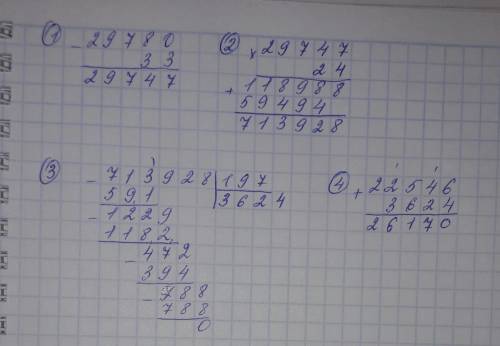 ① - 29780
33
29747
② × 29747
24
+ 118988
59494
713928
③ - 713928 | 197
591 3624
- 1229
1182
- 472
394
- 788
788
0
④ + 22546
3624
26170